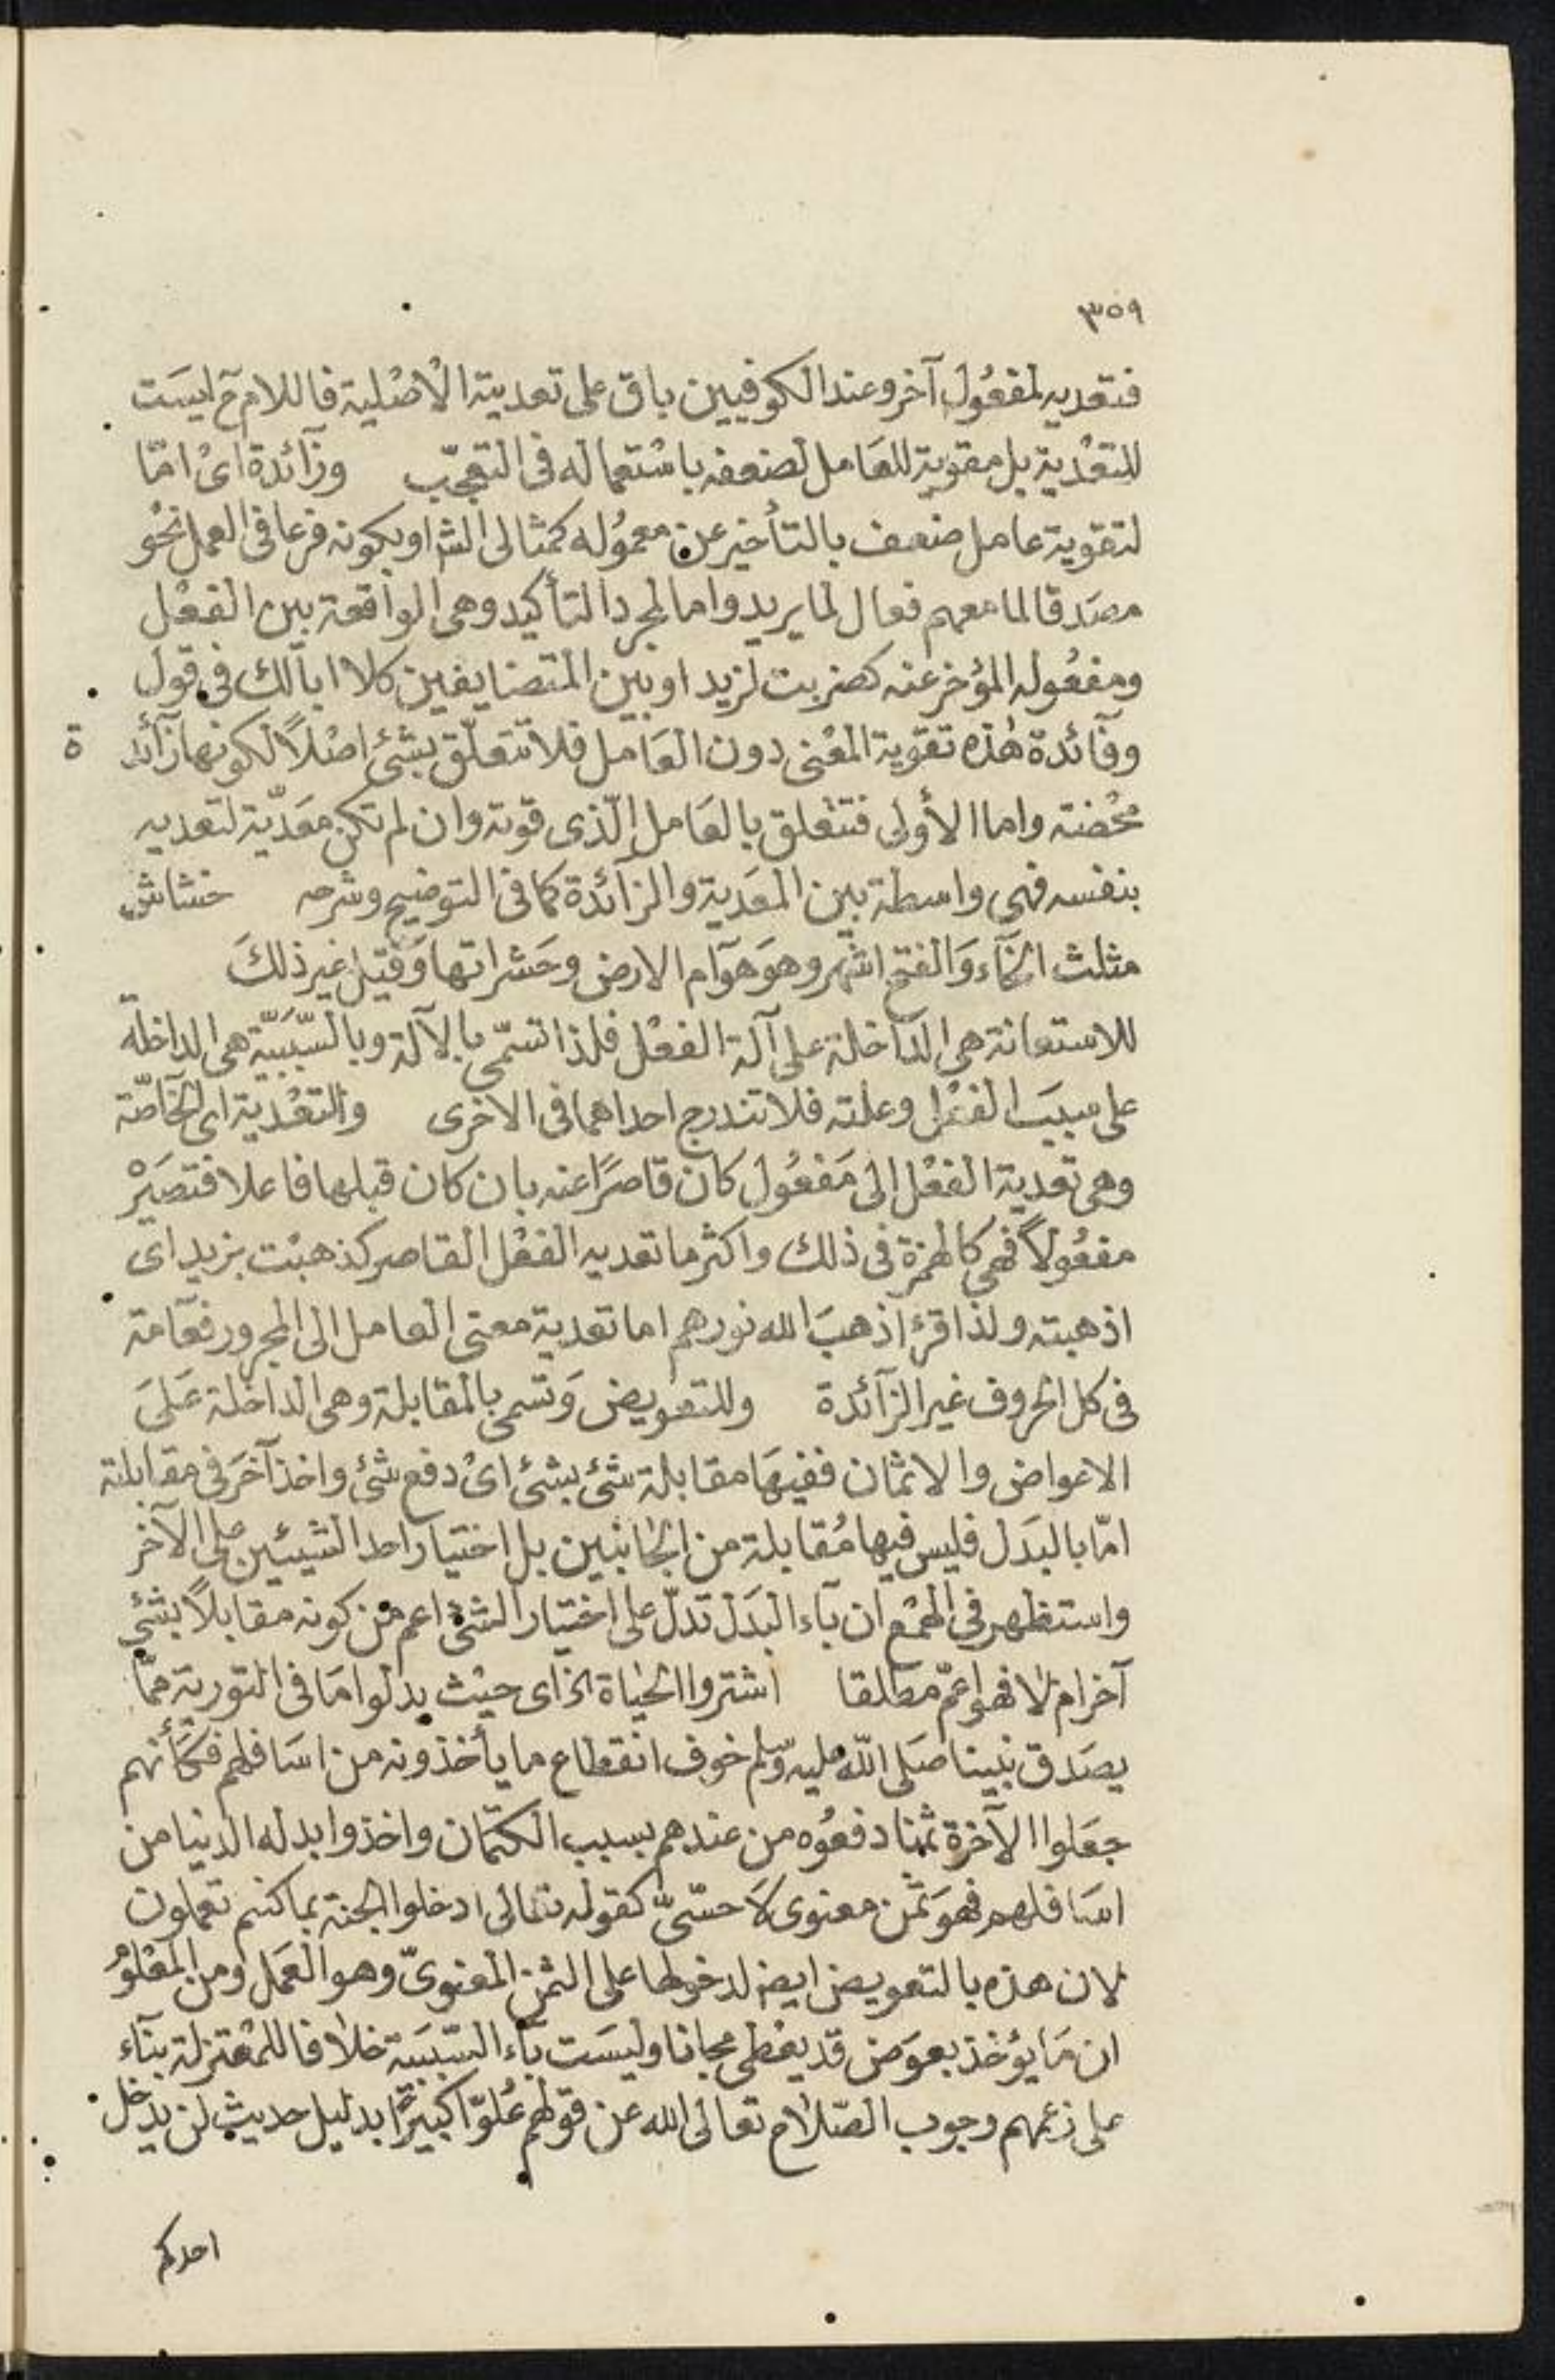 ٣٥٩
فتعديه لمفعُول آخر وعند الكوفيين باق على تعديته الأصْلية فاللام ح ليسَت
للتعْدية بل مقوية للعَامل لضعفه باسْتعماله في التعجّب وزآئدة اىْ امّا
لتقوية عامل ضعف بالتأخير عن معمُوله كمثالى الش او بكونه فرعا في العمل نحْو
مصَدقا لما معهم فعال لما يريد واما لمجرد التأكيد وهى الواقعة بين الفعْل
ومفعُوله المؤخر عنه كضربت لزيد او بين المتضايفين كلا ابالك في قول
وفآئدة هٰذه تقوية المعْنى دون العَامل فلا تتعلّق بشئ اصْلاً لكونها زآئد ة
محْضة واما الأولى فتتعْلق بالعَامل الّذى قوته وان لم تكن معَدّية لتعديه
بنفسه فهى واسطة بين المعَدية والزآئدة كما في التوضيح وشرحه خشاش
مثلث الخآء وَالفتح اشهر وهوَ هوَآم الارض وحَشراتها وَقيل غير ذلكَ
للاستعانة هى الدَاخلة على آلة الفعْل فلذا تسمّى بالآلة وبالسّبَبيّة هى الداخلة
على سببَ الفعْل وعلته فلا تندرج احداهما في الاخرى والتعْدية اى الخآصّة
وهى تعدية الفعْل الى مَفعُول كان قاصرًا عنه بان كان قبلها فاعلا فتصَيْر
مفعُولاً فهى كالهمزة في ذلك واكثر ما تعديه الفعْل القاصر كذهبْت بزيد اى
اذهبته ولذا قرئ اذهبَ الله نورهم اما تعدية معنى العامل الى المجرور فعآمة
في كل الحروف غير الزآئدة وللتعويض وَتسمى بالمقابلة وهى الداخلة عَلىَ
الاعواض والاثمان ففيهَا مقابلة شئ بشئ اىْ دفع شئ واخذ آخرَ في مقابلته
امّا بالبدَل فليس فيها مُقابلة من الجانبين بل اختيار احد الشيئين على الآخر
واستظهر في الهمْع ان بآء البدَل تدلّ على اختيار الشئ اعم من كونه مقابلاً بشئ
آخر ام لا فهو اعمّ مطلقا اشتروا الحياة الخ اى حيْث بدلوا مَا في التورية ممّا
يصَدق بنبينا صَلى الله عليه وسلم خوف انقطاع ما يأخذونه من اسَافلهم فكأنهم
جعَلوا الآخرة ثمنا دفعُوه من عندهم بسبب الكتمَان واخذوا بدله الدنيا من
اسَافلهم فهوَ ثمَن معنوى لاَ حسّىّ كقوله تعالى ادخلوا الجنة بما كنتم تعملون
لان هذه بالتعويض ايض لدخولها على الثمن المعْنوىّ وهو العَمل ومن المعْلوُم
ان مَا يؤخذ بعوَض قد يعْطى مجانا وليسَت بآء السّبَبيَة خلافا للمعْتزلة بنآء
على زعمهم وجوب الصّلاح تعالى الله عن قولهم عُلوّا كبيرًا بدليل حديث لن يدخل
احدكم